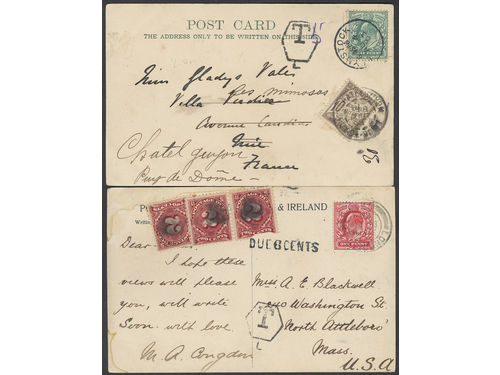 POST CARD
THE ADDRESS ONLY TO BE WRITTEN ON THIS SIDE
T
L
TAVISTOCK
Miss Gladys Vales
Les Mimosas
Villa
Avenue
Chatelguyon
France
Puy de Dôme
& IRELAND
DUE 6 CENTS
ONE PENNY
Dear
I hope these
views will please
you, will write
Soon. with love.
M. A. Congdon
Miss A. E. Blackwell
240 Washington St.
North Attleboro'
Mass.
U.S.A
T
L